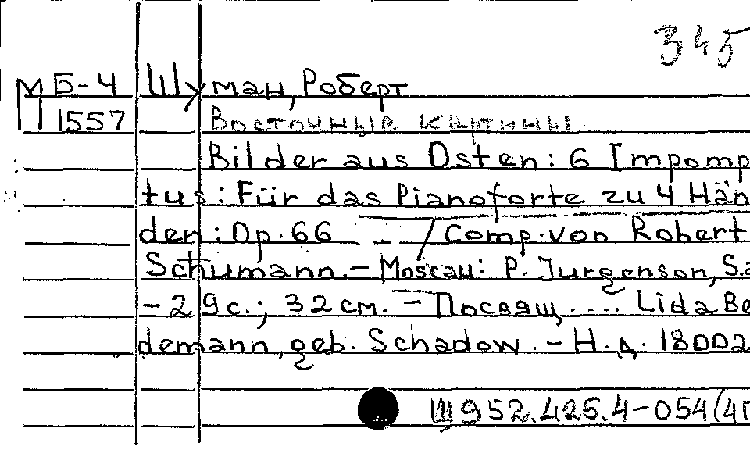 345
М Б-4 Шуман, Роберт
1557 Восточные картины
Bilder aus Osten: 6 Impomp
tus: Für das Pianoforte zu 4 Hän
den: Op. 66 .. / Comp. von Robert
Schumann. – Moscau: P. Jurgenson, S.a
– 29 с.; 32 см. – Посвящ. ... Lida Be
demann, geb. Schadow. – Н.д. 18002
Щ952.425.4-054(4Г